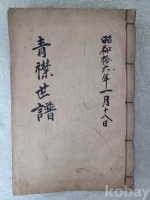 昭和拾六年一月十八日
青襟世譜
kobay